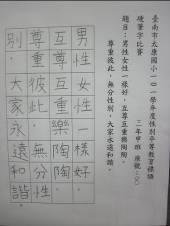 臺南市太康國小一〇一學年度性別平等教育標語
硬筆字比賽 三年甲班 座號:
題目:男性女性一樣好,互尊互重樂陶陶,
尊重彼此,無分性別,大家永遠和諧。
男性女性一樣好,
互尊互重樂陶陶,
尊重彼此,無分性
別,大家永遠和諧。